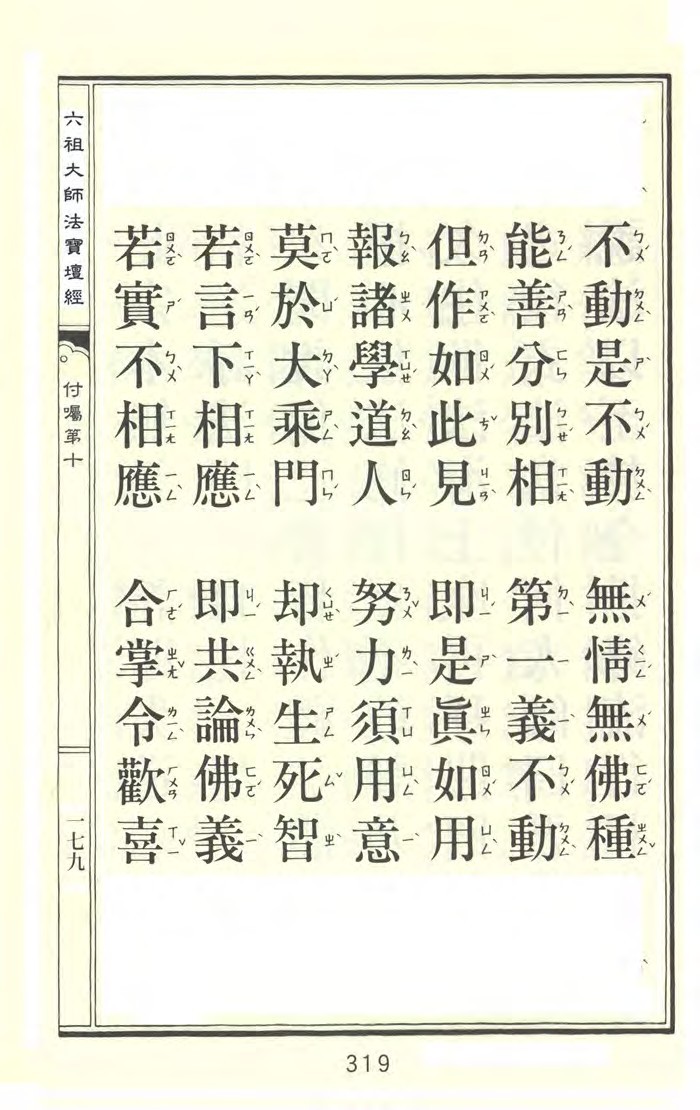 不動是不動 無情無佛種
能善分別相 第一義不動
但作如此見 即是眞如用
報諸學道人 努力須用意
莫於大乘門 却執生死智
若言下相應 即共論佛義
若實不相應 合掌令歡喜
六祖大師法寶壇經
付囑第十
一七九
319